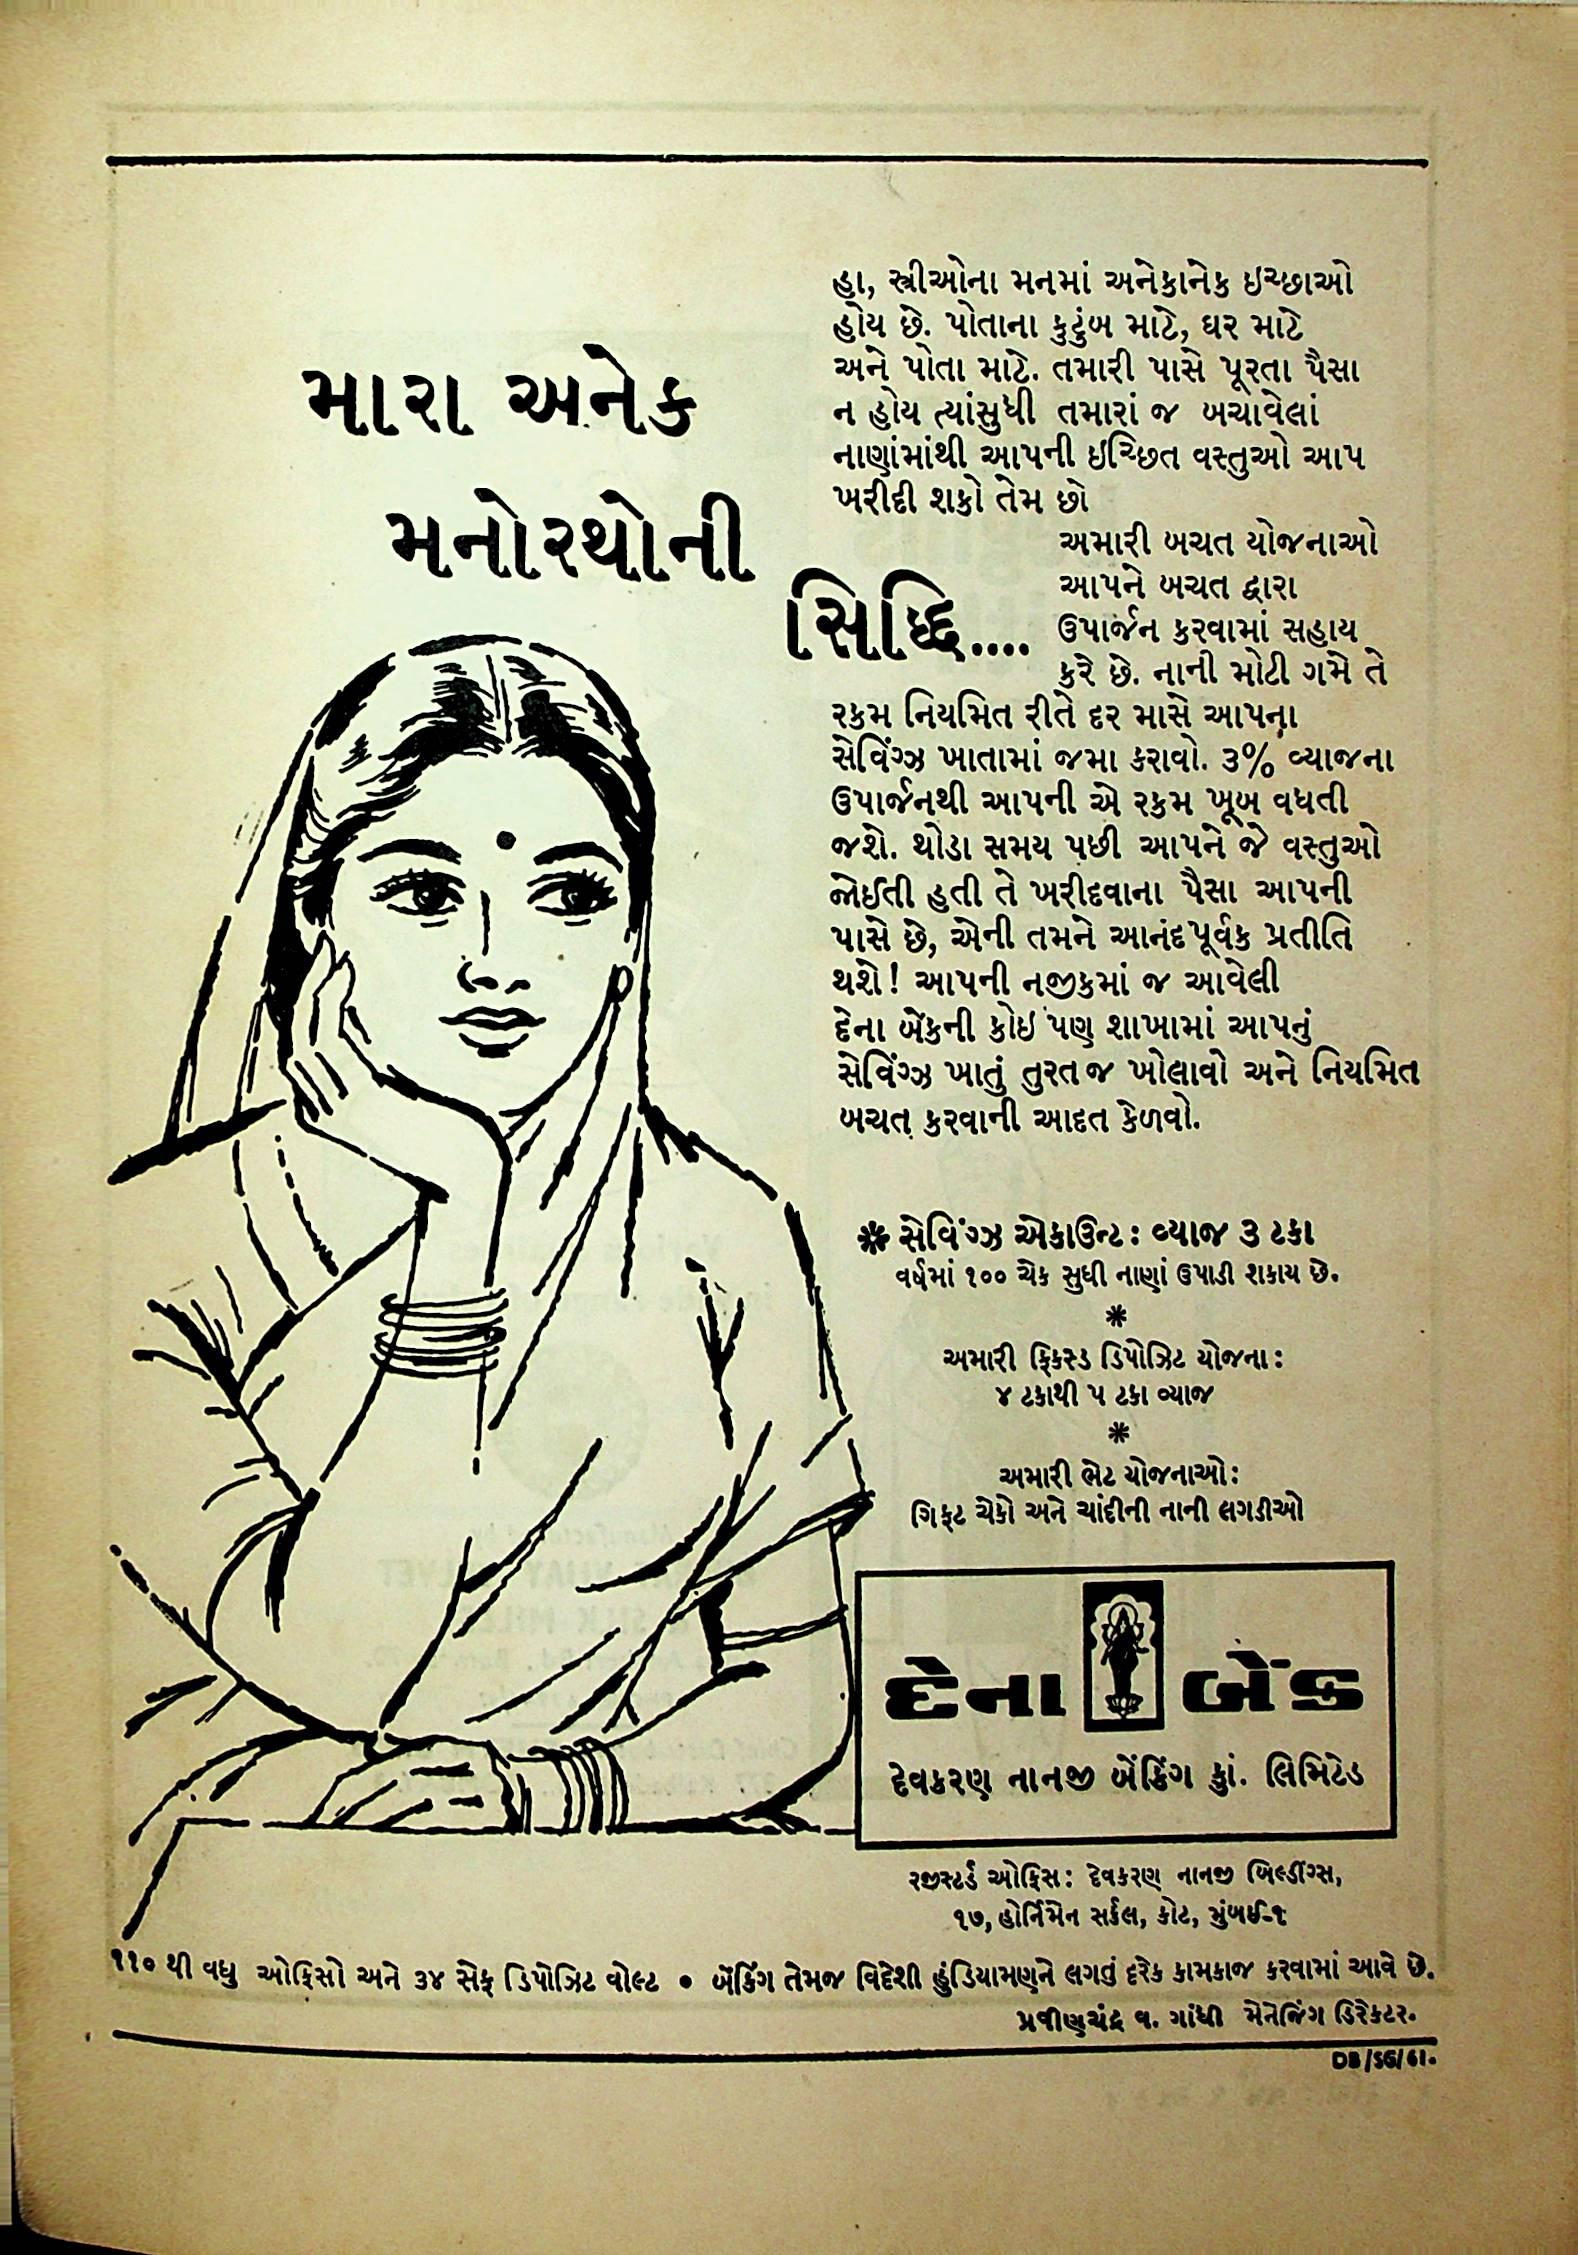 મારા અનેક
મનોરથોની
સિદ્ધિ....
હા, સ્ત્રીઓના મનમાં અનેકાનેક ઇચ્છાઓ
હોય છે. પોતાના કુટુંબ માટે, ઘર માટે
અને પોતા માટે. તમારી પાસે પૂરતા પૈસા
ન હોય ત્યાંસુધી તમારાં જ બચાવેલાં
નાણાંમાંથી આપની ઇચ્છિત વસ્તુઓ આપ
ખરીદી શકો તેમ છો
અમારી બચત યોજનાઓ
આપને બચત દ્વારા
ઉપાર્જન કરવામાં સહાય
કરે છે. નાની મોટી ગમે તે
રકમ નિયમિત રીતે દર માસે આપના
સેવિંગ્ઝ ખાતામાં જમા કરાવો. ૩% વ્યાજના
ઉપાર્જનથી આપની એ રકમ ખૂબ વધતી
જશે. થોડા સમય પછી આપને જે વસ્તુઓ
જોઈતી હતી તે ખરીદવાના પૈસા આપની
પાસે છે, એની તમને આનંદપૂર્વક પ્રતીતિ
થશે! આપની નજીકમાં જ આવેલી
દેના બેંકની કોઇ પણ શાખામાં આપનું
સેવિંગ્ઝ ખાતું તુરત જ ખોલાવો અને નિયમિત
બચત કરવાની આદત કેળવો.
* સેવિંગ્ઝ એકાઉન્ટ: વ્યાજ ૩ ટકા
વર્ષમાં ૧૦૦ ચેક સુધી નાણાં ઉપાડી શકાય છે.
*
અમારી ફિકસ્ડ ડિપોઝિટ યોજના:
૪ ટકાથી ૫ ટકા વ્યાજ
*
અમારી ભેટ યોજનાઓ:
ગિફ્ટ ચેકો અને ચાંદીની નાની લગડીઓ
દેના બેંક
દેવકરણ નાનજી બેંકિંગ કું. લિમિટેડ
રજીસ્ટર્ડ ઓફિસ: દેવકરણ નાનજી બિલ્ડીંગ્સ,
૧૭, હોર્નિમેન સર્કલ, કોટ, મુંબઈ-૧
૧૧૦ થી વધુ ઓફિસો અને ૩૪ સેફ ડિપોઝિટ વોલ્ટ • બેંકિંગ તેમજ વિદેશી હુંડિયામણને લગતું દરેક કામકાજ કરવામાં આવે છે.
પ્રવીણચંદ્ર વ. ગાંધી મેનેજિંગ ડિરેકટર.
DB/SG/61.